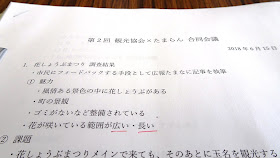 第2回 観光協会×たまらん 合同会議
2018年6月15日
1. 花しょうぶまつり 調査結果
・市民にフィードバックする手段として広報たまなに記事を執筆
① 魅力
・風情ある景色の中に花しょうぶがある
・町の景観
・ゴミがないなど整備されている
・花が咲いている範囲が広い・長い
② 課題
・花しょうぶまつりメインで来ても、そのあとに玉名を観光す